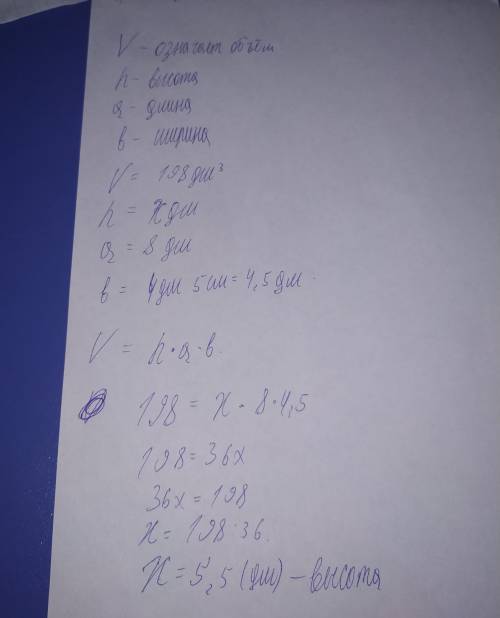 V - означает объём
h - высота
a - длина
в - ширина
V = 198 дм³
h = x дм
a = 8 дм
в = 4дм 5см = 4,5 дм.
V = h · a · в.
198 = x · 8 · 4,5
198 = 36x
36x = 198
x = 198 : 36.
x = 5,5 (дм) - высота